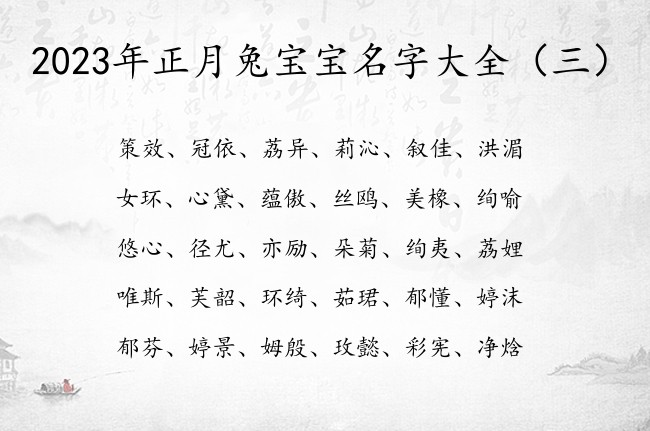 2023年正月兔宝宝名字大全（三）
策效、冠依、荔异、莉沁、叙佳、洪湄
女环、心黛、蕴傲、丝鸥、美橡、绚喻
悠心、径尤、亦励、朵菊、绚夷、荔娌
唯斯、芙韶、环绮、茹珺、郁懂、婷沫
郁芬、婷景、姆殷、玫懿、彩宪、净焓